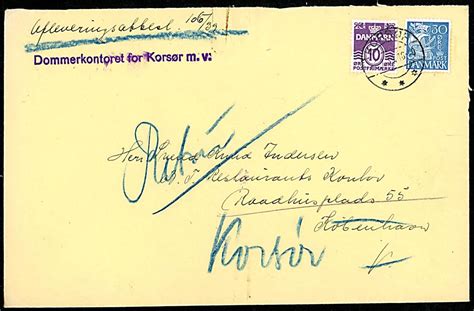 Afleveringsattest 106/39
Dommerkontoret for Korsør m. v.
DANMARK
10
POSTFRIMÆRKE
30
ØRE
POST
DANMARK
Retur
Herr Knud Andersen
Restaurants Kontor
Raadhusplads 55
København
Korsør